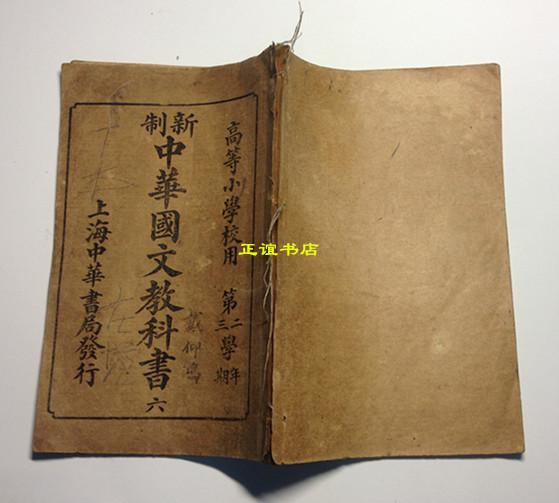 高等小學校用 第二學年三學期
新制
中華國文教科書 六
上海中華書局發行
正谊书店